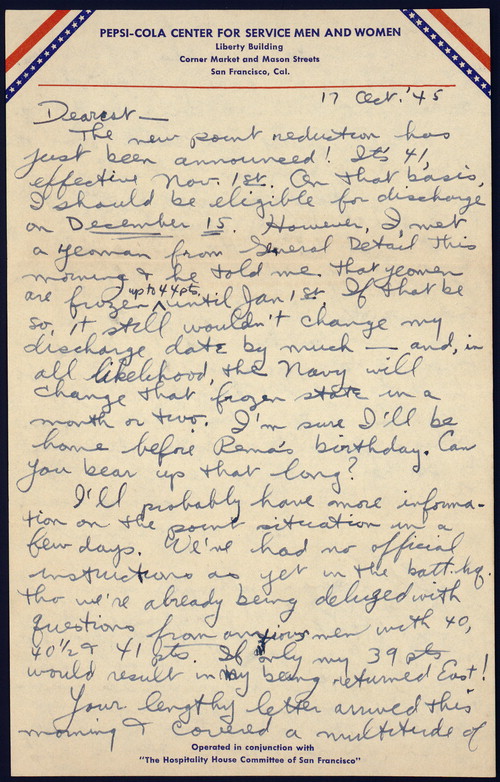 PEPSI-COLA CENTER FOR SERVICE MEN AND WOMEN
Liberty Building
Corner Market and Mason Streets
San Francisco, Cal.
17 Oct. '45
Dearest —
The new point reduction has
just been announced! It's 41,
effective Nov. 1st. On that basis,
I should be eligible for discharge
on December 15. However, I met
a yeoman from General Detail this
morning & he told me that yeomen
are frozen up to 44 pts until Jan 1st. If that be
so, it still wouldn't change my
discharge date by much — and, in
all likelihood, the Navy will
change that frozen state in a
month or two. I'm sure I'll be
home before Rema's birthday. Can
you bear up that long?
I'll probably have more informa-
tion on the point situation in a
few days. We've had no official
instructions as yet in the batt. hq.
tho we're already being deluged with
questions from anxious men with 40,
40 1/2 & 41 pts. If only my 39 pts
would result in my being returned East!
Your lengthy letter arrived this
morning & covered a multitude of
Operated in conjunction with
"The Hospitality House Committee of San Francisco"